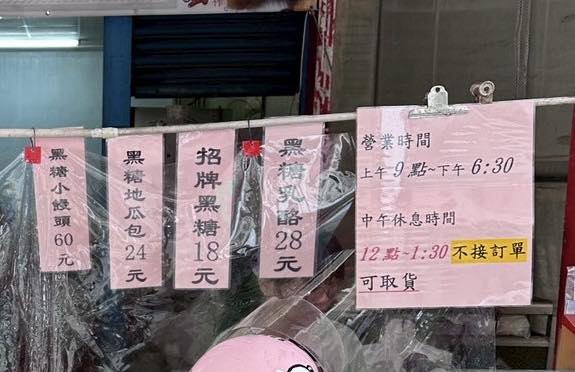 黑糖小饅頭 60元
黑糖地瓜包 24元
招牌黑糖 18元
黑糖乳酪 28元
營業時間
上午9點~下午6:30
中午休息時間
12點~1:30 不接訂單
可取貨